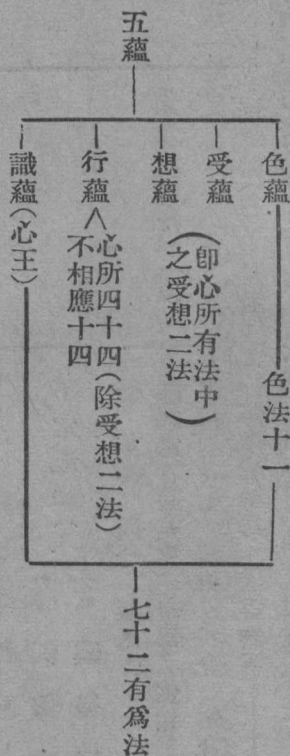 五蘊
色蘊
色法十一
受蘊
想蘊
(卽心所有法中
之受想二法)
行蘊
心所四十四(除受想二法)
不相應十四
識蘊(心王)
七十二有爲法